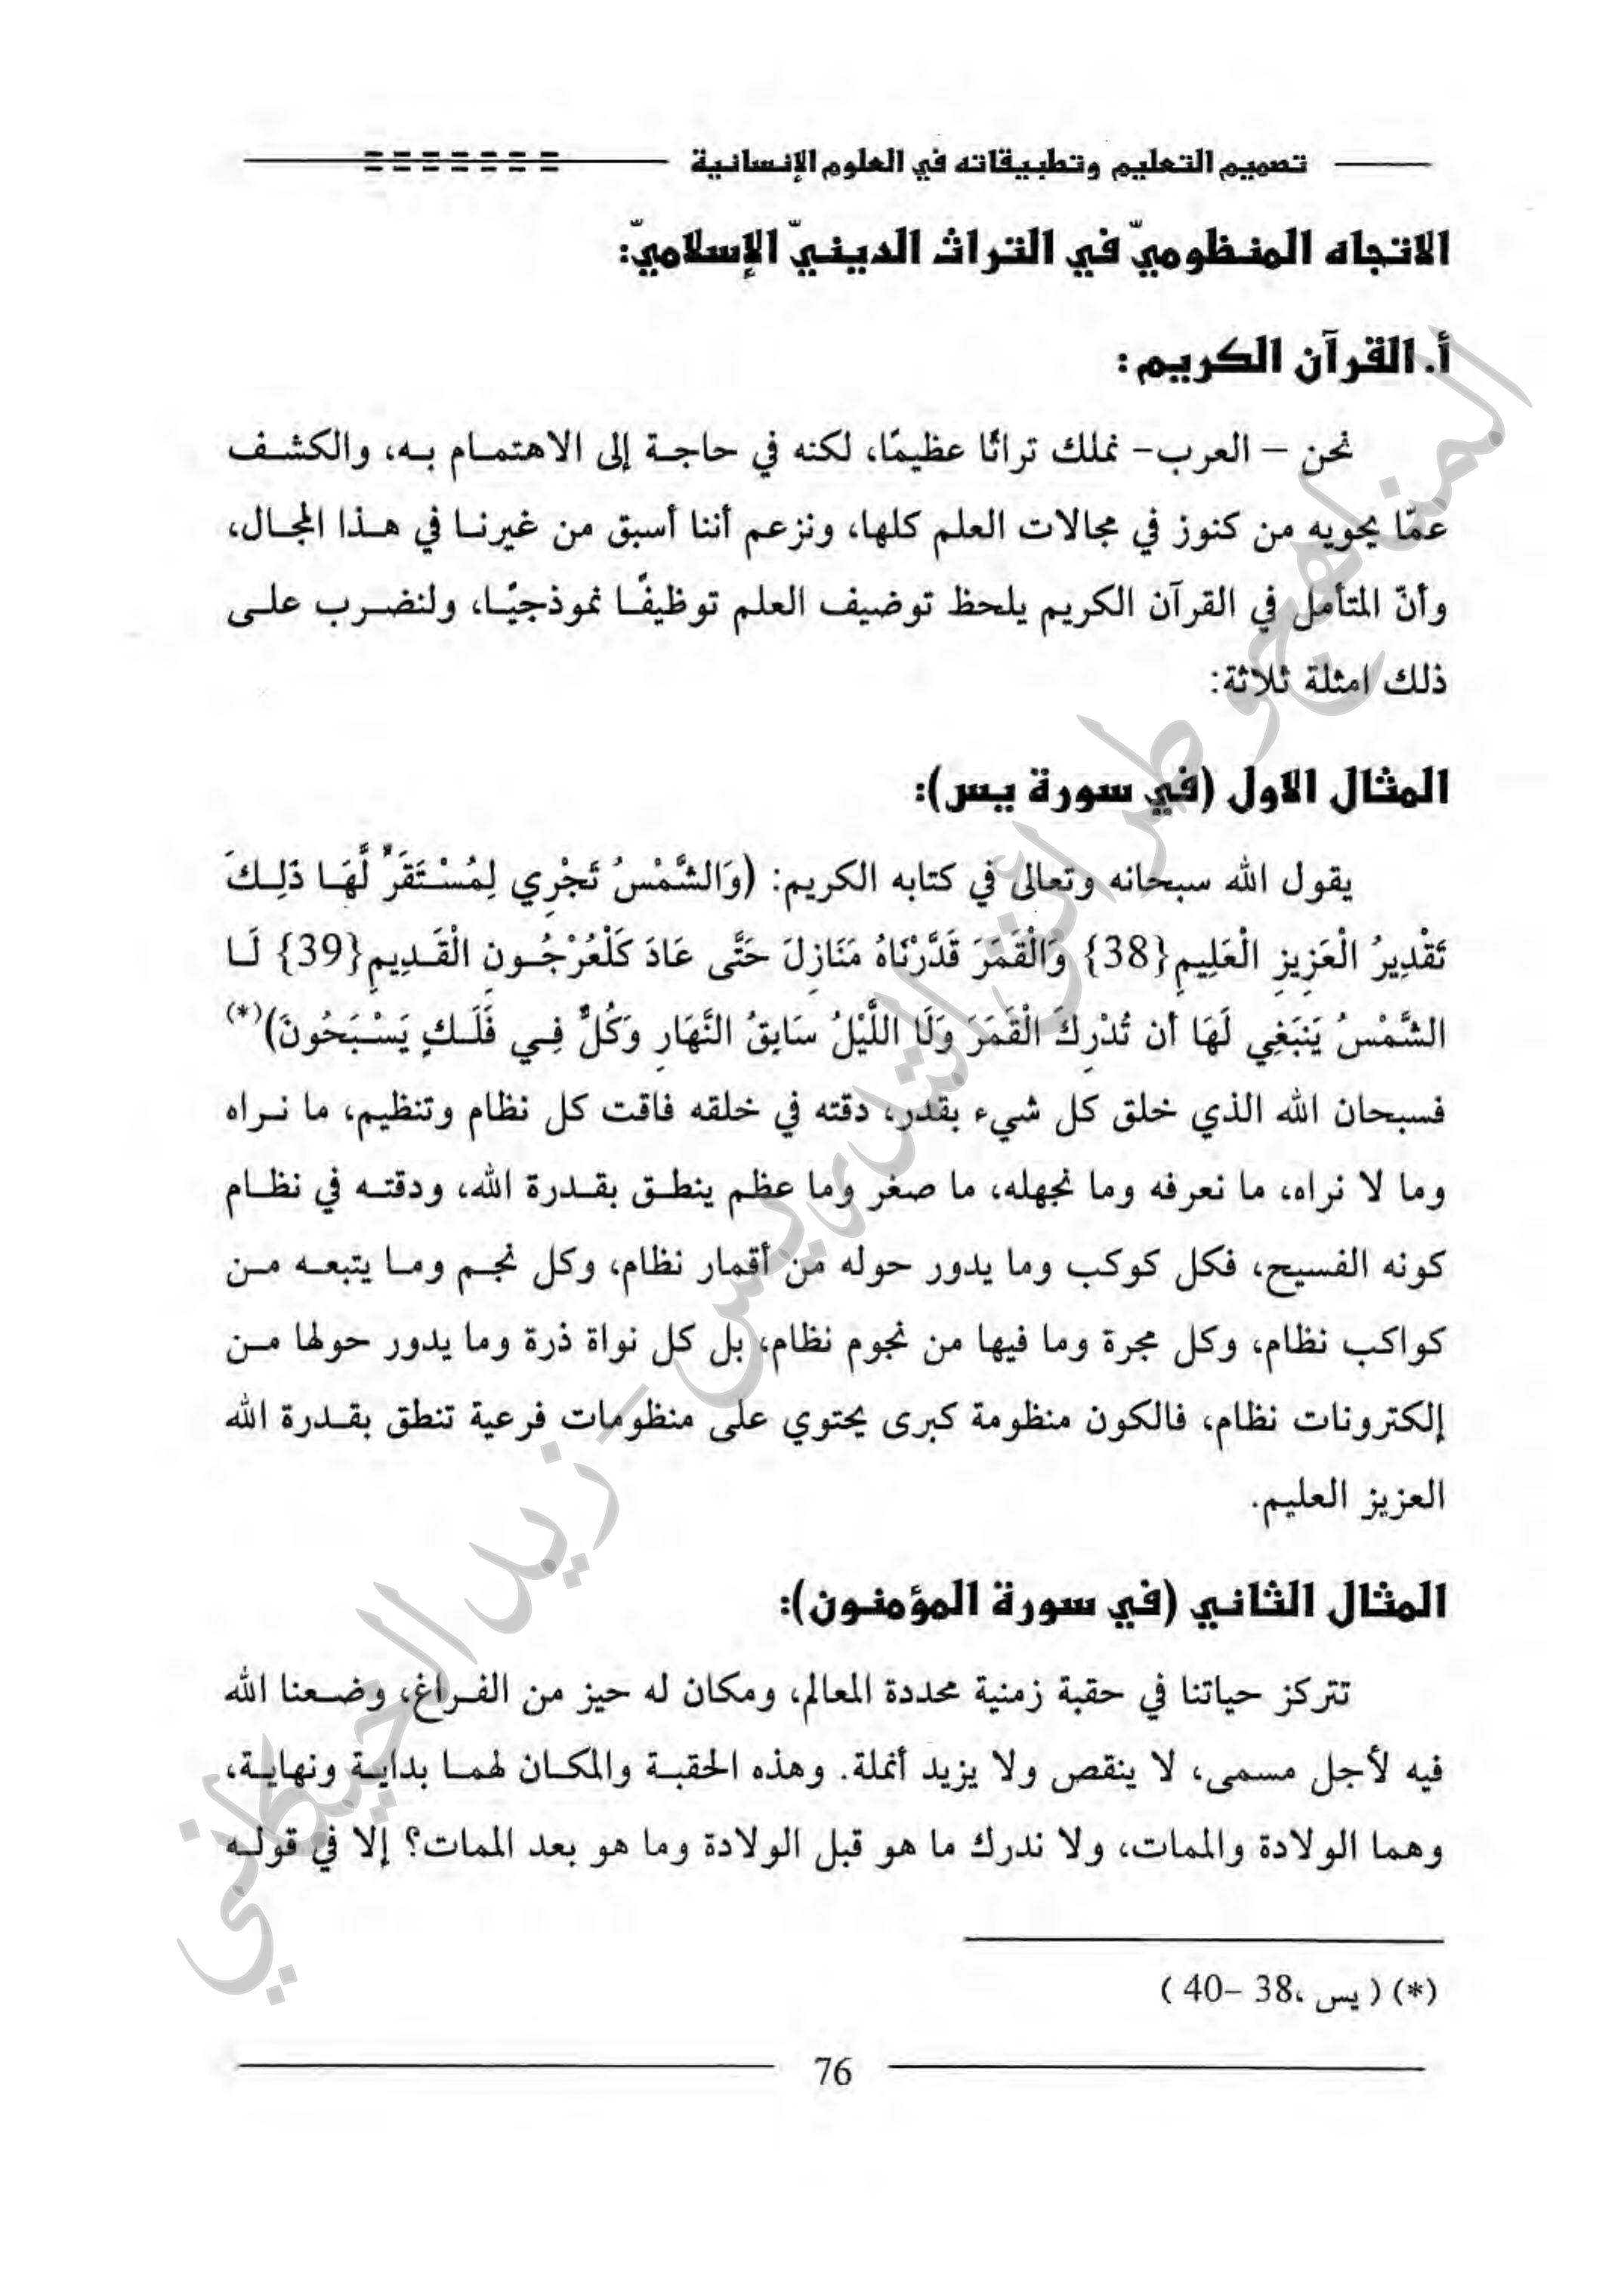 تصميم التعليم وتطبيقاته في العلوم الإنسانية
الاتجاه المنظوميّ في التراث الدينيّ الإسلاميّ:
أ. القرآن الكريم:
نحن – العرب- نملك تراثًا عظيمًا، لكنه في حاجة إلى الاهتمام به، والكشف
عمّا يحويه من كنوز في مجالات العلم كلها، ونزعم أننا أسبق من غيرنا في هذا المجال،
وأنّ المتأمل في القرآن الكريم يلحظ توضيف العلم توظيفًا نموذجيًا، ولنضرب على
ذلك امثلة ثلاثة:
المثال الاول (في سورة يس):
يقول الله سبحانه وتعالى في كتابه الكريم: (وَالشَّمْسُ تَجْرِي لِمُسْتَقَرٍّ لَّهَا ذَلِكَ
تَقْدِيرُ الْعَزِيزِ الْعَلِيمِ{38} وَالْقَمَرَ قَدَّرْنَاهُ مَنَازِلَ حَتَّى عَادَ كَلْعُرْجُونِ الْقَدِيمِ{39} لَا
الشَّمْسُ يَنبَغِي لَهَا أَن تُدْرِكَ الْقَمَرَ وَلَا اللَّيْلُ سَابِقُ النَّهَارِ وَكُلٌّ فِي فَلَكٍ يَسْبَحُونَ)(*)
فسبحان الله الذي خلق كل شيء بقدر، دقته في خلقه فاقت كل نظام وتنظيم، ما نراه
وما لا نراه، ما نعرفه وما نجهله، ما صغر وما عظم ينطق بقدرة الله، ودقته في نظام
كونه الفسيح، فكل كوكب وما يدور حوله من أقمار نظام، وكل نجم وما يتبعه من
كواكب نظام، وكل مجرة وما فيها من نجوم نظام، بل كل نواة ذرة وما يدور حولها من
إلكترونات نظام، فالكون منظومة كبرى يحتوي على منظومات فرعية تنطق بقدرة الله
العزيز العليم.
المثال الثاني (في سورة المؤمنون):
تتركز حياتنا في حقبة زمنية محددة المعالم، ومكان له حيز من الفراغ، وضعنا الله
فيه لأجل مسمى، لا ينقص ولا يزيد أنملة. وهذه الحقبة والمكان لهما بداية ونهاية،
وهما الولادة والممات، ولا ندرك ما هو قبل الولادة وما هو بعد الممات؟ إلا في قوله
(*) ( يس ،38 –40 )
76
المناهج وطرائق التدريس - زيد الخيكاني